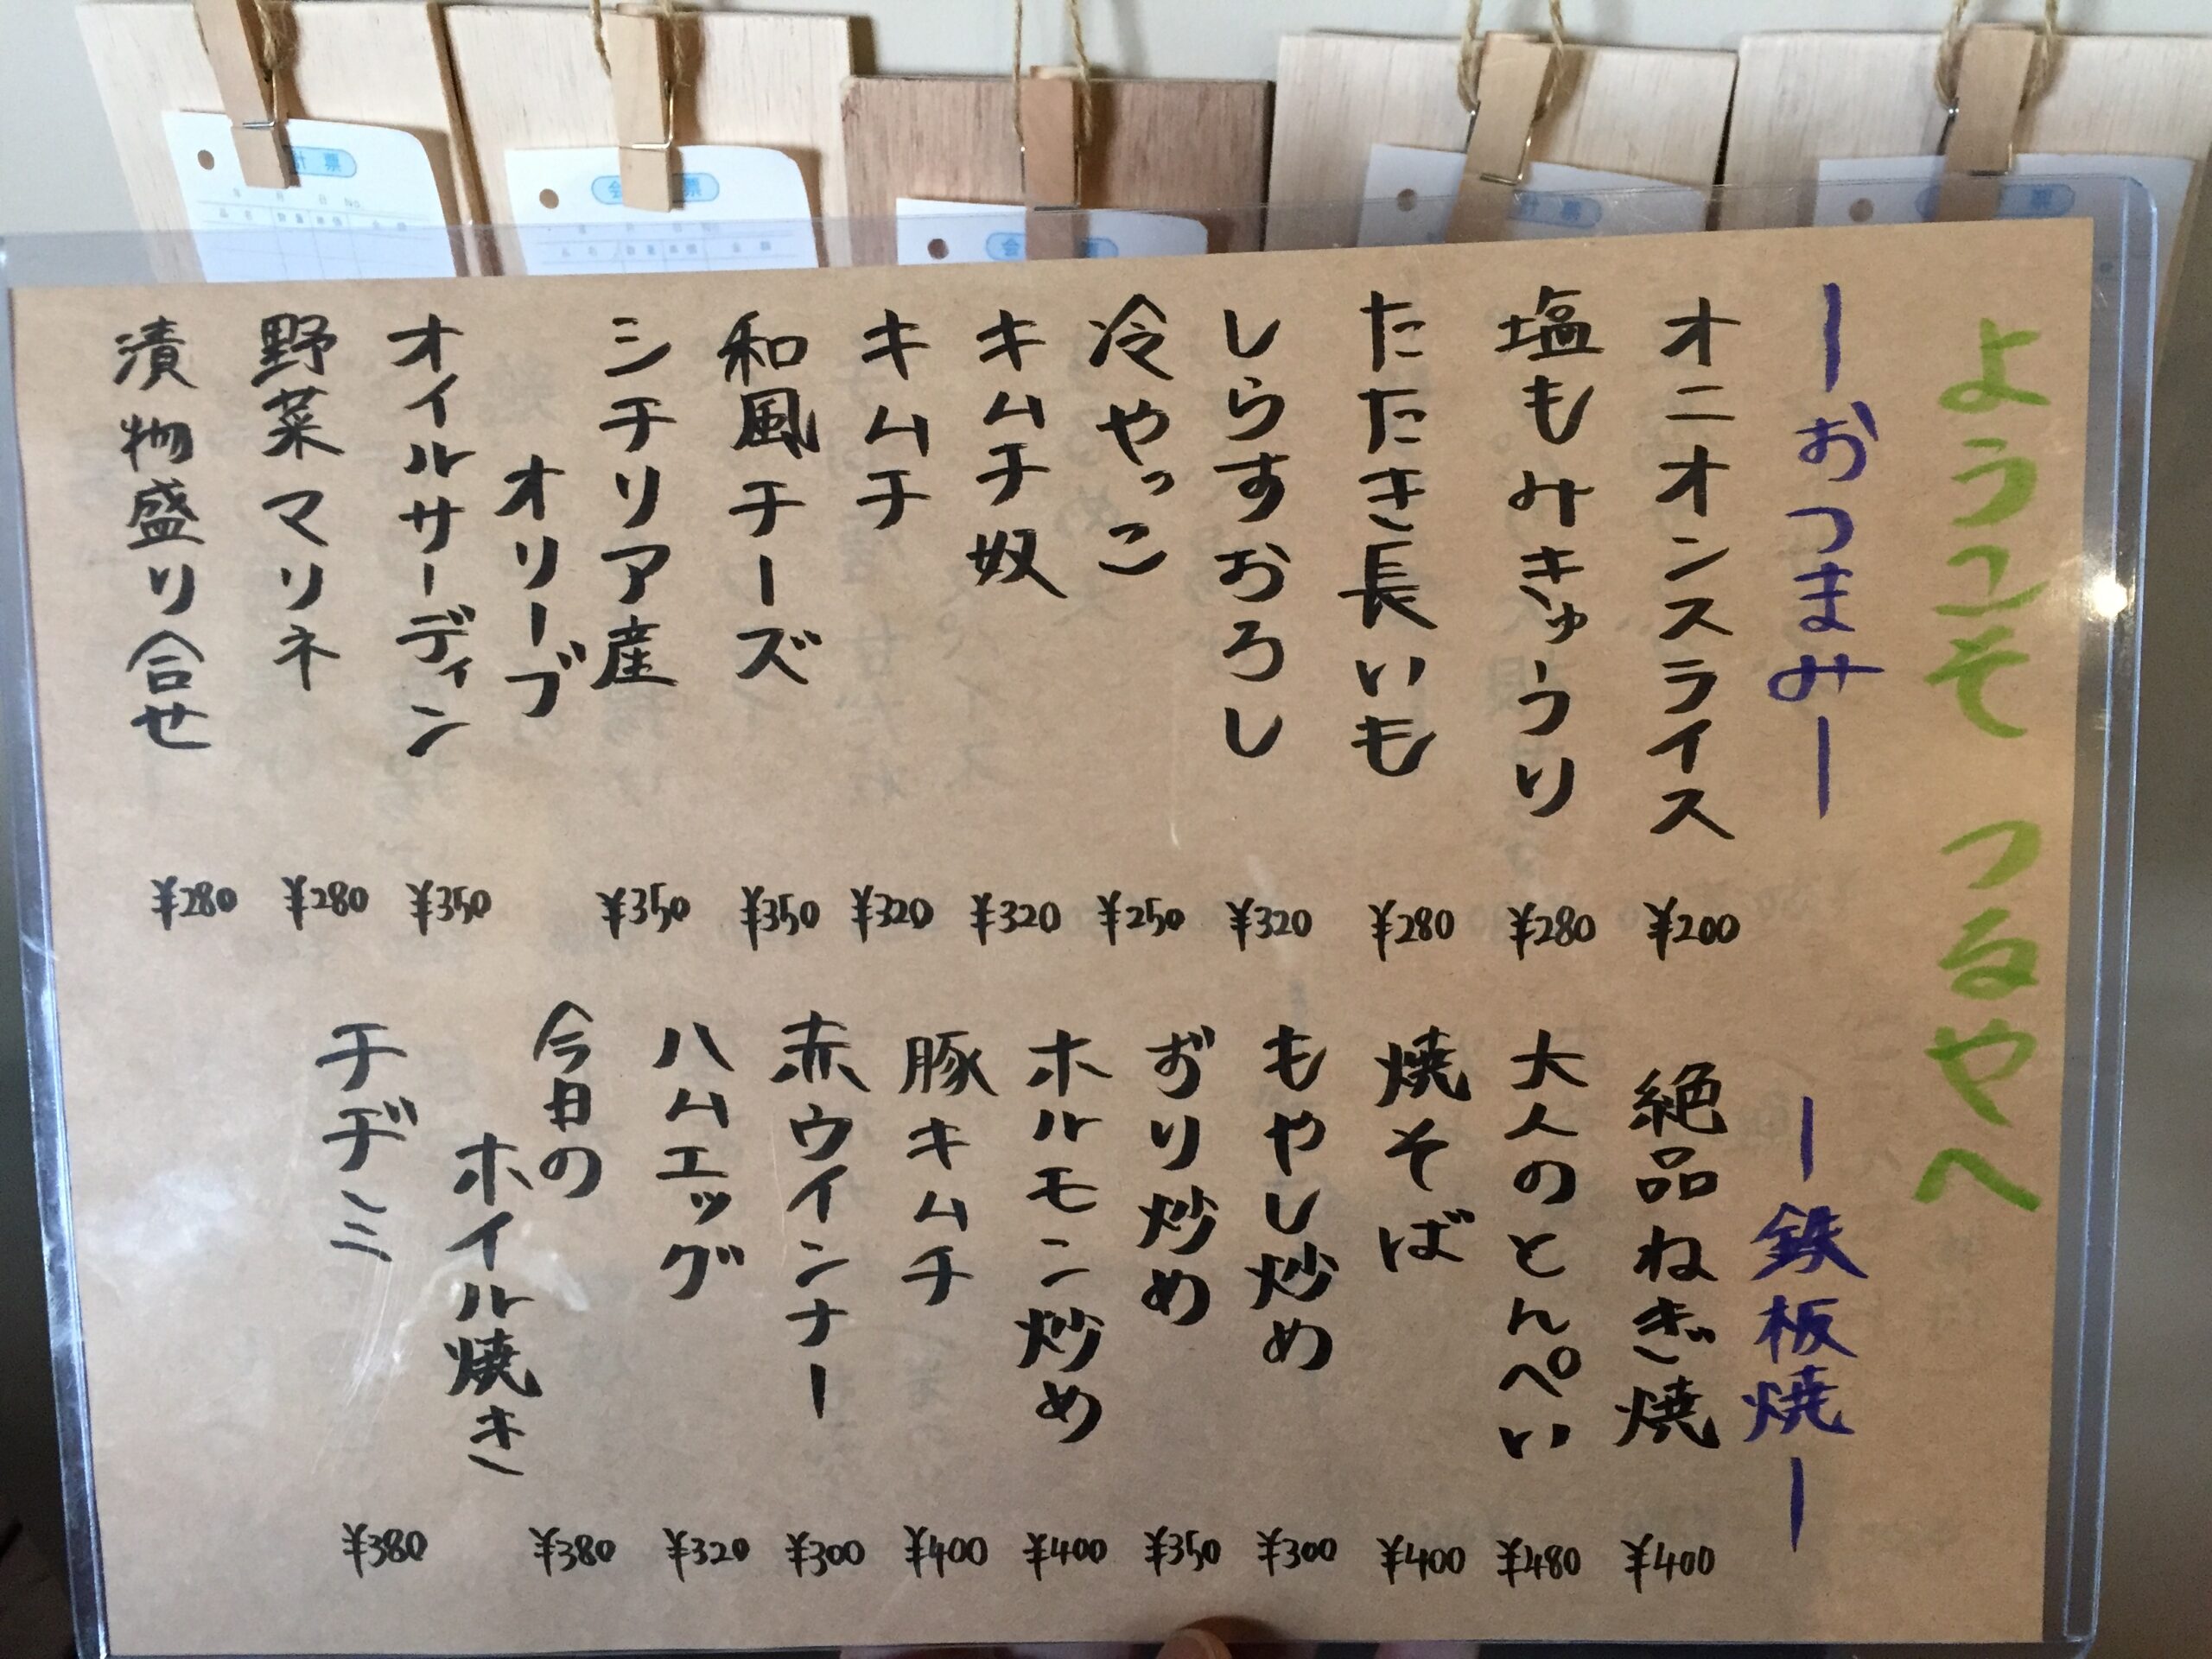 ようこそ つるやへ
ーおつまみー
オニオンスライス ¥200
塩もみきゅうり ¥280
たたき長いも ¥280
しらすおろし ¥320
冷やっこ ¥250
キムチ奴 ¥320
キムチ ¥320
和風チーズ ¥350
シチリア産
オリーブ ¥350
オイルサーディン ¥350
野菜マリネ ¥280
漬物盛り合せ ¥280
ー鉄板焼ー
絶品ねぎ焼 ¥400
大人のとんぺい ¥480
焼そば ¥400
もやし炒め ¥300
ずり炒め ¥350
ホルモン炒め ¥400
豚キムチ ¥400
赤ウインナー ¥300
ハムエッグ ¥320
今日の
ホイル焼き ¥380
チヂミ ¥380
計票
年 月 日 No.
品名 数量 単価 金額
会 票
年 月 日 No.
品名 数量 単価 金額
会 票
計票
票